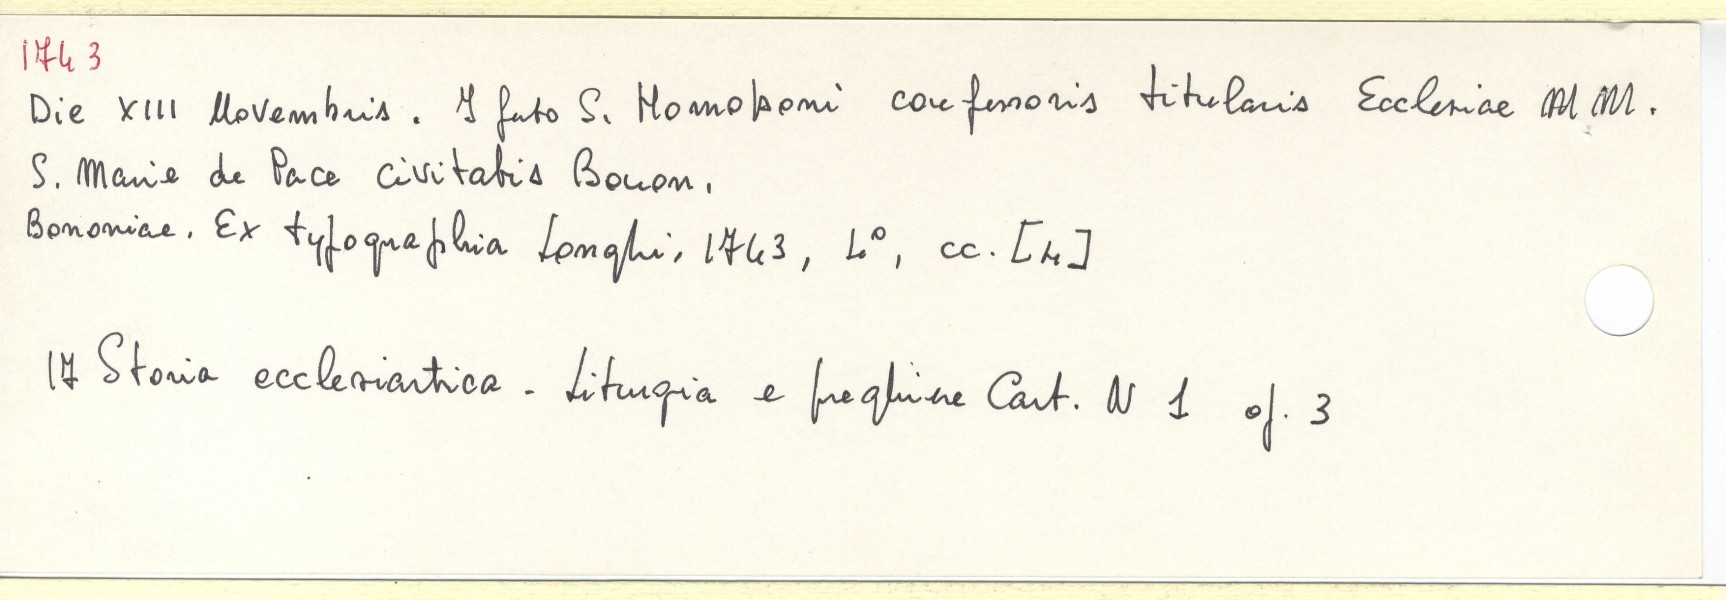 1743
Die XIII Novembris. I festo S. Homoboni confessoris titularis Ecclesiae MM.
S. Marie de Pace civitatis Bonon.
Bononiae. Ex typographia Longhi, 1743, 4°, cc. [4]
17 Storia ecclesiastica - Liturgia e preghiere Cart. N 1 op. 3